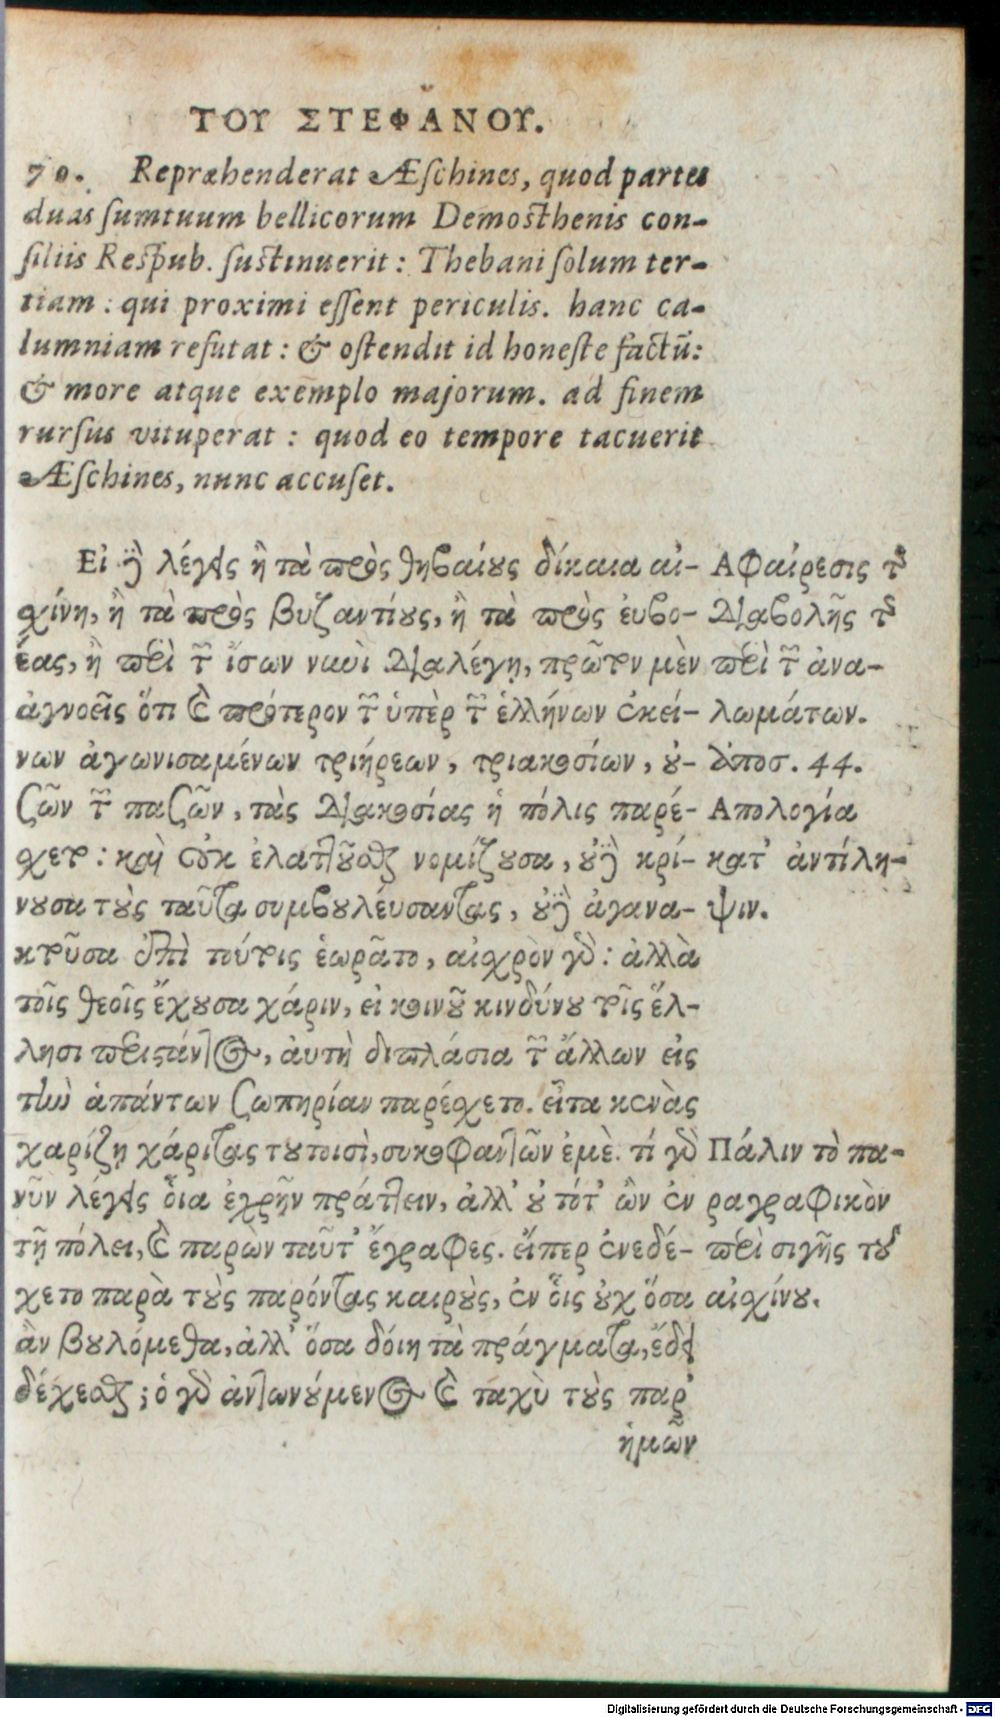 ΤΟΥ ΣΤΕΦΑΝΟΥ.
70. Repræhenderat Æschines, quod partes
duas sumtuum bellicorum Demosthenis con-
siliis Respub. sustinuerit : Thebani solum ter-
tiam : qui proximi essent periculis. hanc ca-
lumniam refutat : & ostendit id honeste factū:
& more atque exemplo majorum. ad finem
rursus vituperat : quod eo tempore tacuerit
Æschines, nunc accuset.
Εἰ δὲ λέγεις ἢ τὰ πρὸς θηβαίους δίκαια αἰ-
χίνη, ἢ τὰ πρὸς βυζαντίους, ἢ τὰ πρὸς ἐυβο-
έας, ἢ περὶ τῶν ἴσων νυνὶ διαλέγῃ, πρῶτον μὲν
ἀγνοεῖς ὅτι καὶ πρότερον τῶν ὑπὲρ τῶν ἑλλήνων ἐκεί-
νων ἀγωνισαμένων τριήρεων, τριακοσίων, οὐ-
σῶν τῶν πασῶν, τὰς διακοσίας ἡ πόλις παρέ-
χετο : καὶ οὐκ ἐλαττοῦσθαι νομίζουσα, οὐδὲ κρί-
νουσα τοὺς ταῦτα συμβουλέυσαντας, οὐδὲ ἀγανα-
κτοῦσα ἐπὶ τούτοις ἑωρᾶτο, αἰσχρὸν γάρ : ἀλλὰ
τοῖς θεοῖς ἔχουσα χάριν, εἰ κοινοῦ κινδύνου τοῖς ἕλ-
λησι περιστάντος, ἀυτὴ διπλάσια τῶν ἄλλων εἰς
τὴν ἁπάντων σωτηρίαν παρέχετο. εἶτα κενὰς
χαρίζῃ χάριτας τουτοισὶ, συκοφαντῶν ἐμὲ. τί γὰρ
νῦν λέγεις οἷα ἐχρῆν πράττειν, ἀλλ' οὐ τότ' ὢν ἐν
τῇ πόλει, καὶ παρὼν ταῦτ' ἔγραφες. εἴπερ ἐνεδέ-
χετο παρὰ τοὺς παρόντας καιροὺς, ἐν οἷς οὐχ ὅσα
ἂν βουλόμεθα, ἀλλ' ὅσα δόιη τὰ πράγματα, ἔδει
δέχεσθαι ; ὁ γὰρ ἀντωνούμενος καὶ ταχὺ τοὺς παρ'
ἡμῶν
Αφαίρεσις τῆς
διαβολῆς τῆς
περὶ τῶν ἀνα-
λωμάτων.
ἀποσ. 44.
Απολογία
κατ' ἀντίλη-
ψιν.
Πάλιν τὸ πα-
ραγραφικὸν
περὶ σιγῆς τοῦ
αἰσχίνου.
Digitalisierung gefördert durch die Deutsche Forschungsgemeinschaft - DFG